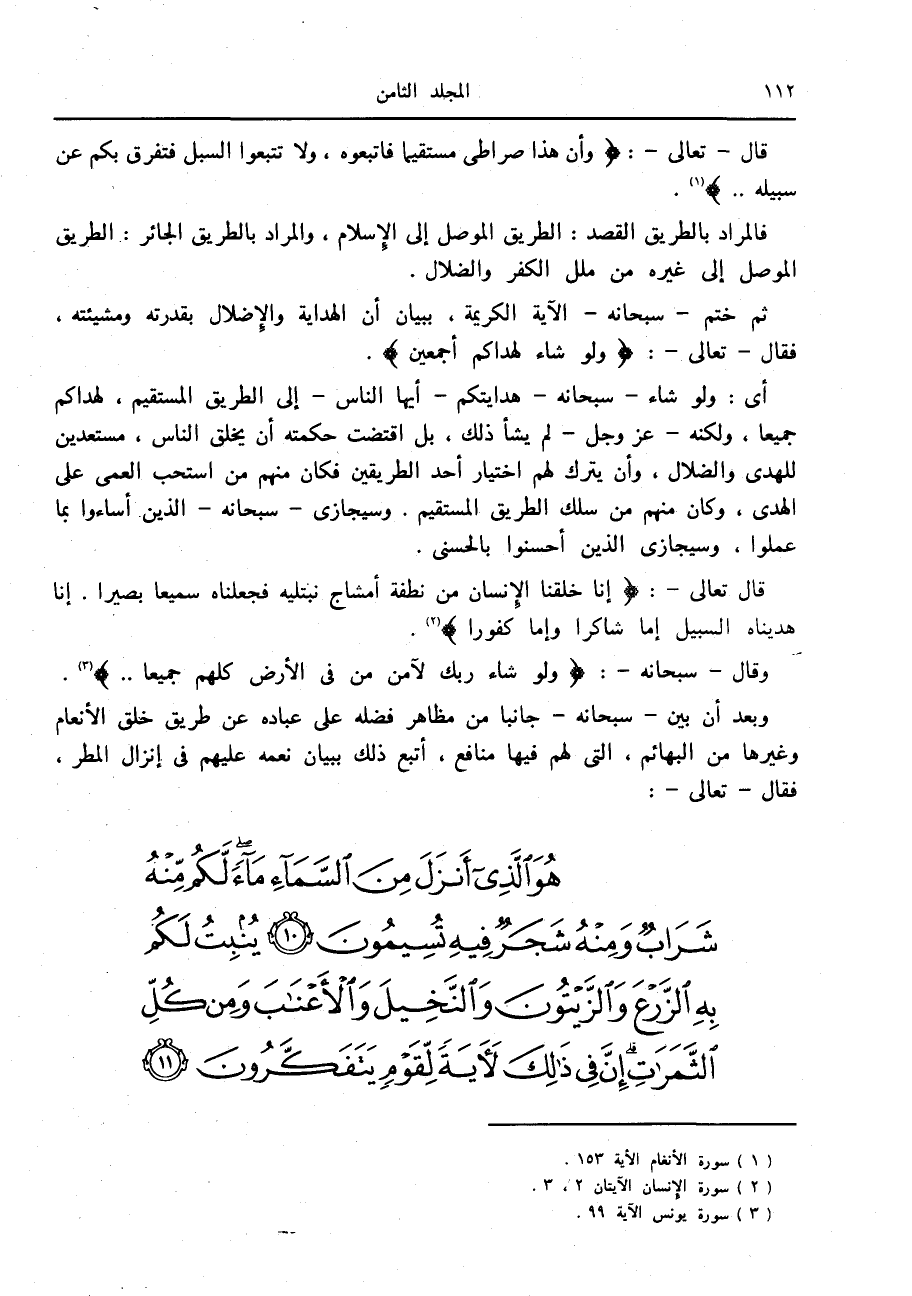 ١١٢ المجلد الثامن
قال – تعالى – : ﴿ وأن هذا صراطى مستقيما فاتبعوه ، ولا تتبعوا السبل فتفرق بكم عن
سبيله .. ﴾(١) .
فالمراد بالطريق القصد : الطريق الموصل إلى الإسلام ، والمراد بالطريق الجائر : الطريق
الموصل إلى غيره من ملل الكفر والضلال .
ثم ختم – سبحانه – الآية الكريمة ، ببيان أن الهداية والإضلال بقدرته ومشيئته ،
فقال – تعالى – : ﴿ ولو شاء لهداكم أجمعين ﴾ .
أى : ولو شاء – سبحانه – هدايتكم – أيها الناس – إلى الطريق المستقيم ، لهداكم
جميعا ، ولكنه – عز وجل – لم يشأ ذلك ، بل اقتضت حكمته أن يخلق الناس ، مستعدين
للهدى والضلال ، وأن يترك لهم اختيار أحد الطريقين فكان منهم من استحب العمى على
الهدى ، وكان منهم من سلك الطريق المستقيم . وسيجازى – سبحانه – الذين أساءوا بما
عملوا ، وسيجازى الذين أحسنوا بالحسنى .
قال تعالى – : ﴿ إنا خلقنا الإنسان من نطفة أمشاج نبتليه فجعلناه سميعا بصيرا . إنا
هديناه السبيل إما شاكرا وإما كفورا ﴾(٢) .
وقال – سبحانه – : ﴿ ولو شاء ربك لآمن من فى الأرض كلهم جميعا .. ﴾(٣) .
وبعد أن بين – سبحانه – جانبا من مظاهر فضله على عباده عن طريق خلق الأنعام
وغيرها من البهائم ، التى لهم فيها منافع ، أتبع ذلك ببيان نعمه عليهم فى إنزال المطر ،
فقال – تعالى – :
هُوَ ٱلَّذِىٓ أَنزَلَ مِنَ ٱلسَّمَآءِ مَآءًۖ لَّكُم مِّنْهُ
شَرَابٌ وَمِنْهُ شَجَرٌ فِيهِ تُسِيمُونَ ١٠ يُنۢبِتُ لَكُم
بِهِ ٱلزَّرْعَ وَٱلزَّيْتُونَ وَٱلنَّخِيلَ وَٱلْأَعْنَٰبَ وَمِن كُلِّ
ٱلثَّمَرَٰتِۗ إِنَّ فِى ذَٰلِكَ لَأَيَةً لِّقَوْمٍ يَتَفَكَّرُونَ ١١
( ١ ) سورة الأنغام الأية ١٥٣ .
( ٢ ) سورة الإنسان الآيتان ٢ ، ٣ .
( ٣ ) سورة يونس الآية ٩٩ .